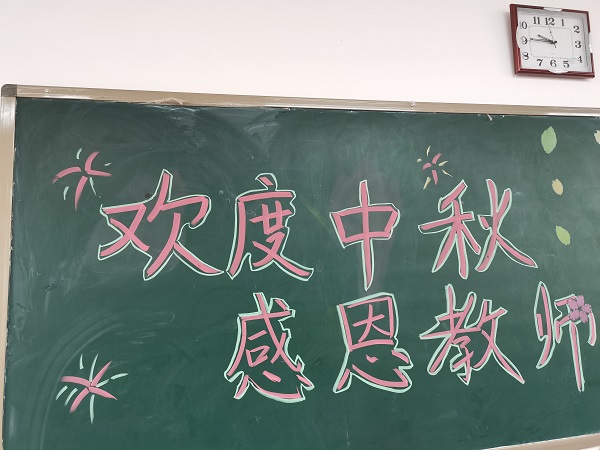 欢度中秋
感恩教师
12
1
2
3
4
5
6
7
8
9
10
11